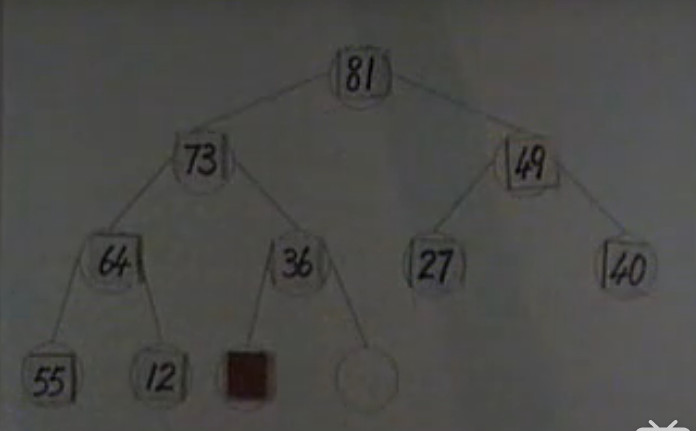 81
73 49
64 36 27 40
55 12